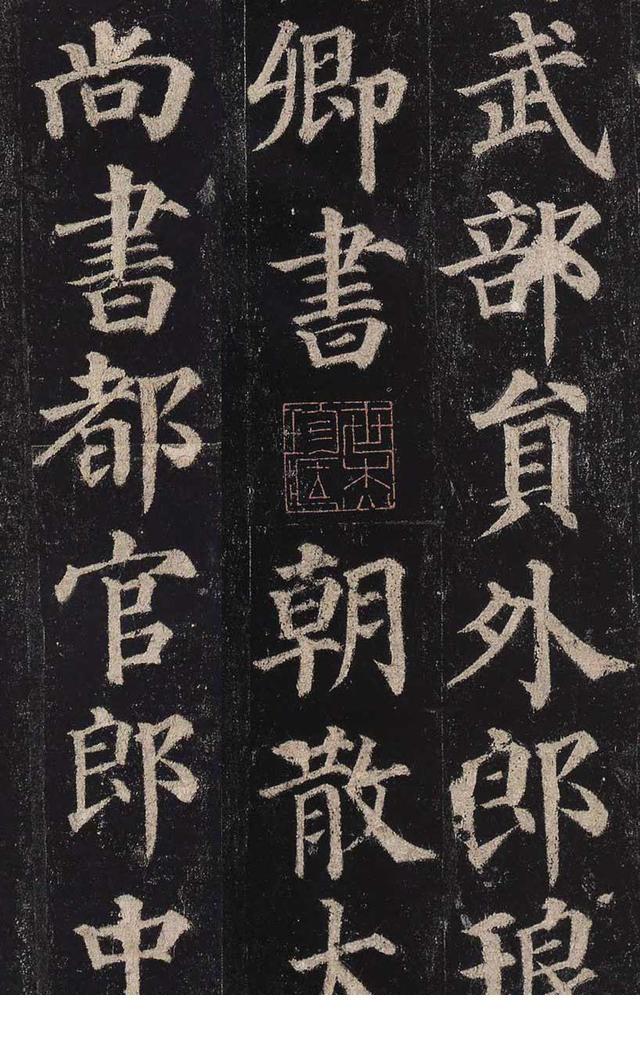 武部員外郎琅
卿書朝散大
尚書都官郎中